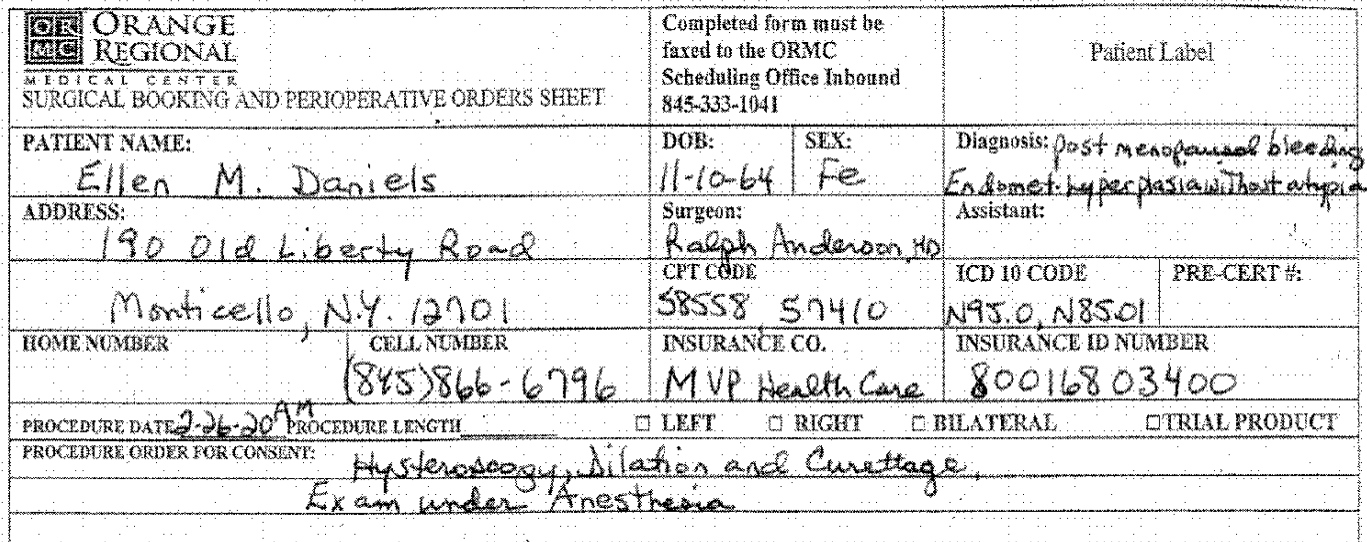 OR ORANGE
MC REGIONAL
MEDICAL CENTER
SURGICAL BOOKING AND PERIOPERATIVE ORDERS SHEET
Completed form must be
faxed to the ORMC
Scheduling Office Inbound
845-333-1041
Patient Label
PATIENT NAME:
Ellen M. Daniels
DOB:
11-10-64
SEX:
Fe
Diagnosis: post menopausal bleeding
Endomet. hyperplasia without atypia
ADDRESS:
190 Old Liberty Road
Surgeon:
Ralph Anderson, MD
Assistant:
Monticello, N.Y. 12701
CPT CODE
58558, 57410
ICD 10 CODE
N95.0, N85.01
PRE-CERT #:
HOME NUMBER
CELL NUMBER
(845)866-6796
INSURANCE CO.
MVP Health Care
INSURANCE ID NUMBER
80016803400
PROCEDURE DATE 2-26-20 AM PROCEDURE LENGTH □ LEFT □ RIGHT □ BILATERAL □ TRIAL PRODUCT
PROCEDURE ORDER FOR CONSENT: Hysteroscopy, Dilation and Curettage,
Exam under Anesthesia